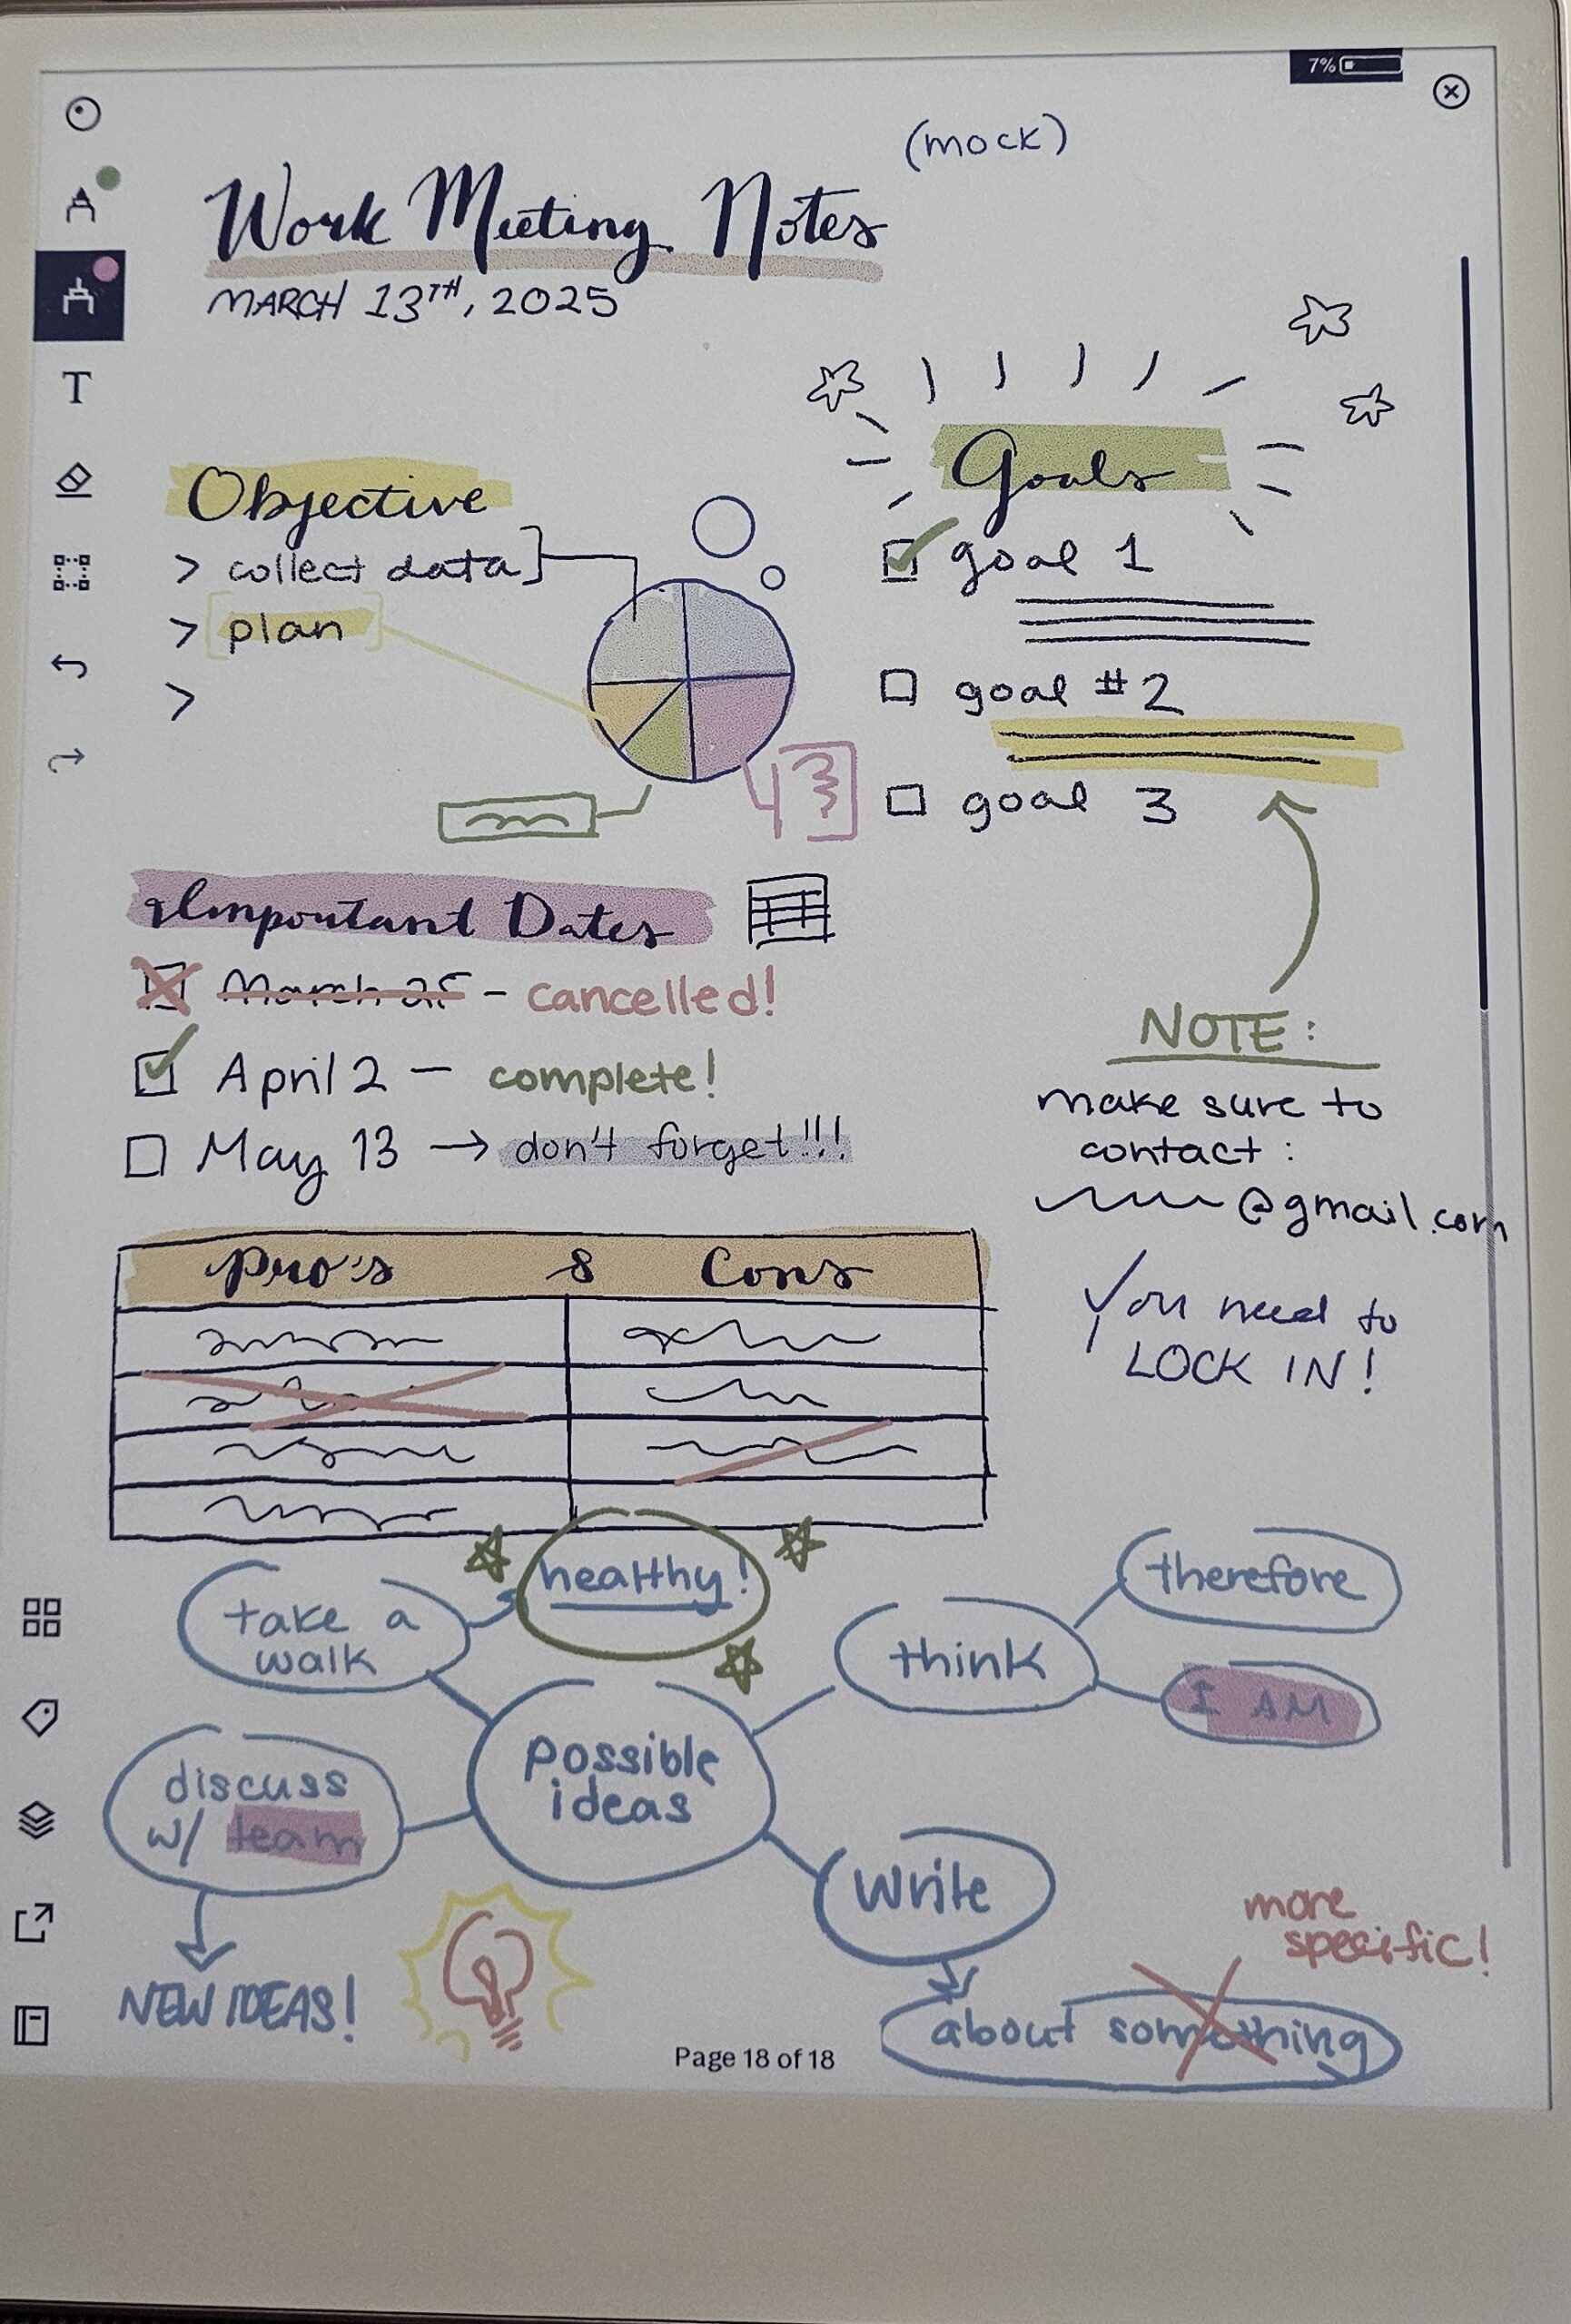 7%
(mock)
Work Meeting Notes
MARCH 13TH, 2025
Objective
> collect data]
> [plan]
>
Goals
goal 1
goal #2
goal 3
Important Dates
March 25 - cancelled!
April 2 — complete!
May 13 → don't forget!!!
NOTE:
make sure to
contact:
@gmail.com
You need to
LOCK IN!
Pro's & Cons
take a
walk
healthy!
think
therefore
I AM
possible
ideas
discuss
w/ team
NEW IDEAS!
Write
more
specific!
about something
Page 18 of 18
T